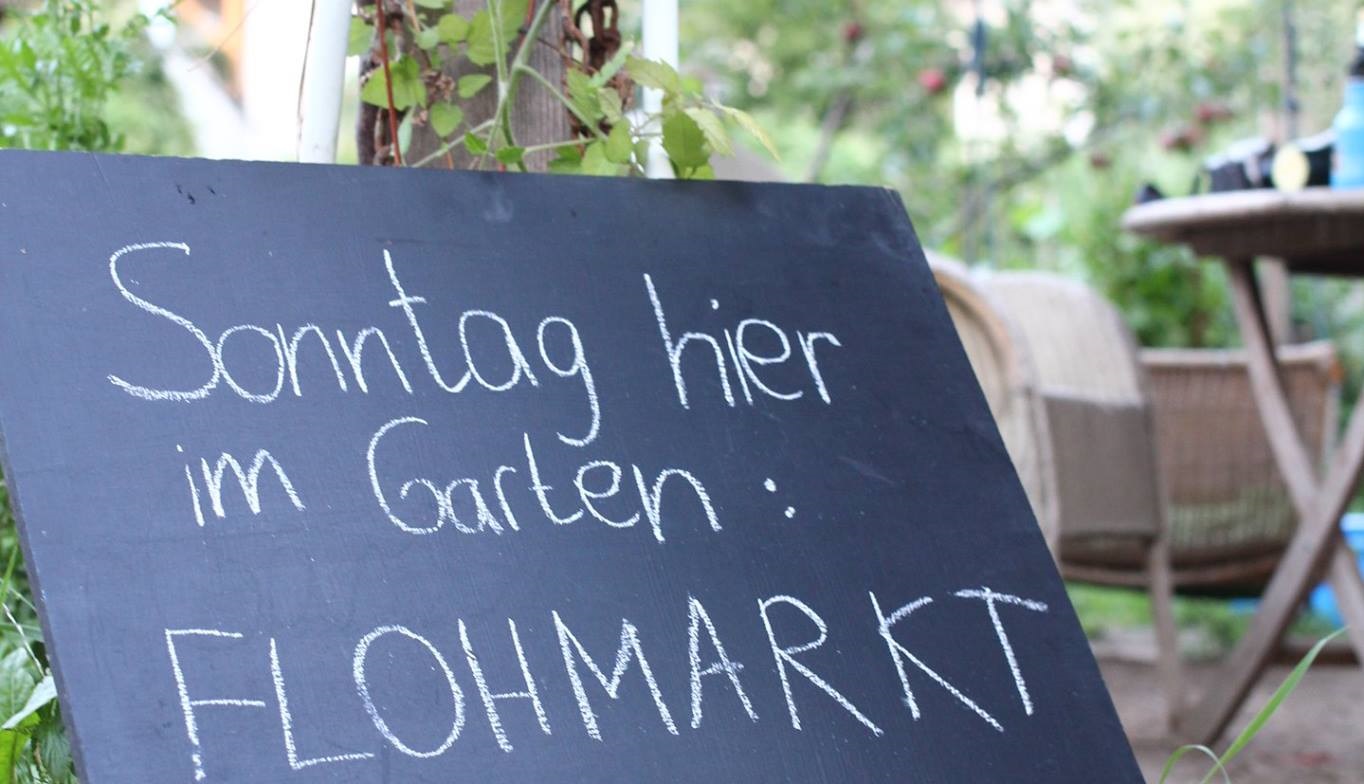 Sonntag hier
im Garten :
FLOHMARKT